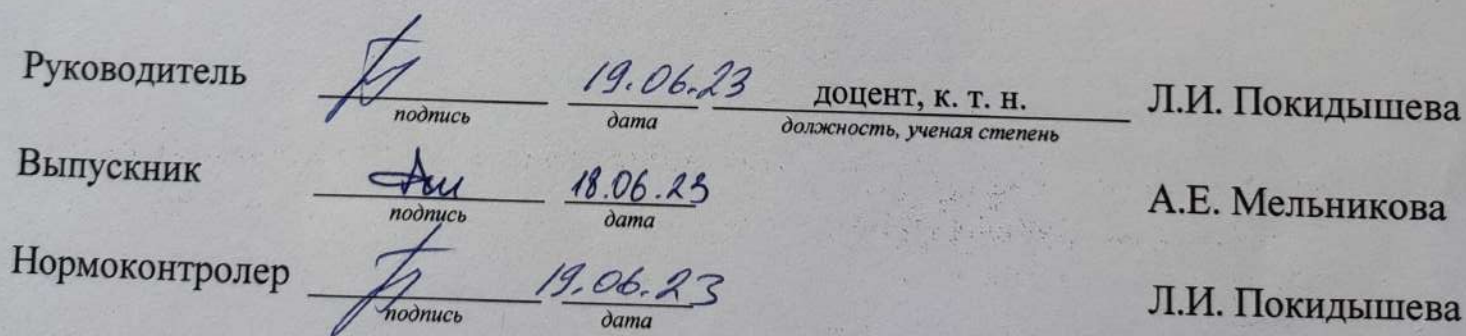 Руководитель 19.06.23 доцент, к. т. н. Л.И. Покидышева
подпись дата должность, ученая степень
Выпускник 18.06.23 А.Е. Мельникова
подпись дата
Нормоконтролер 19.06.23 Л.И. Покидышева
подпись дата